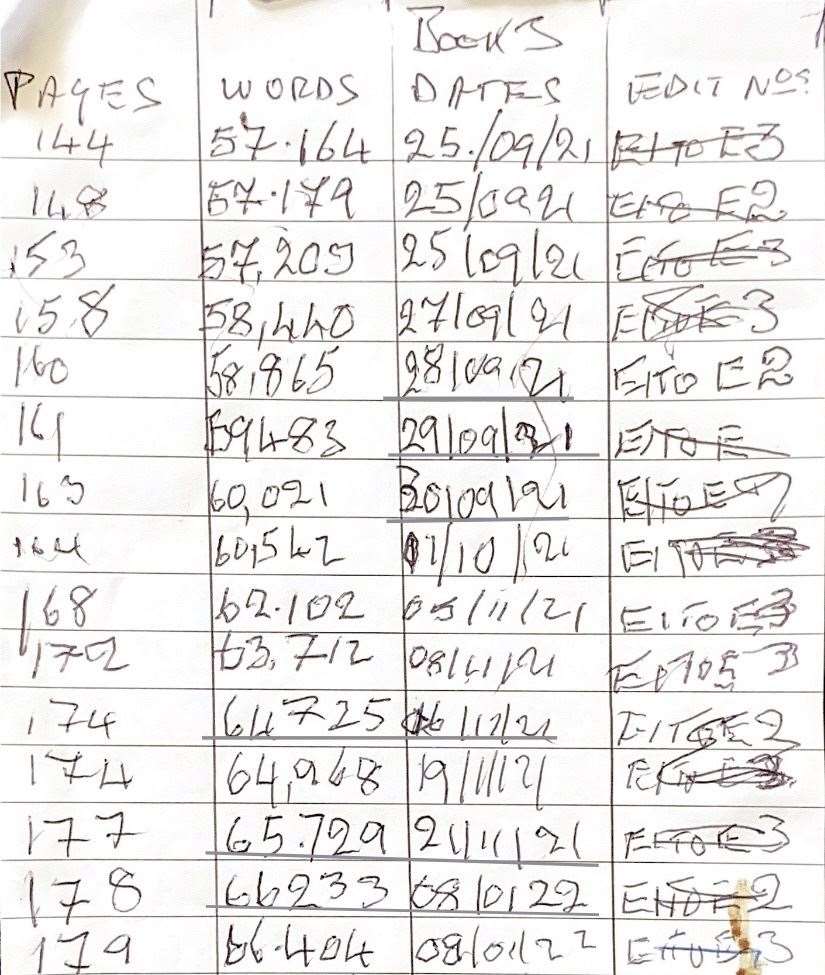 BOOK 3
PAGES WORDS DATES EDIT NOS
144 57.164 25./09/21 E1 TO E3
148 57.179 25/0921 E2
153 57,209 25/09/21 E1 TO E3
158 58,440 27/09/21 3
160 58,865 28/09/21 E1 TO E2
161 59483 29/09/21 E1 TO E
163 60,021 30/09/21 E1 TO E
164 60,542 01/10/21 E1 TO
168 62.102 05/11/21 E1 TO E3
172 63,712 08/11/21 3
174 64725 16/11/21 E1 TO E2
174 64,968 19/11/21
177 65.729 21/11/21 E1 TO E3
178 66233 08/0122 E1 TO E2
179 66.404 08/01/22 3